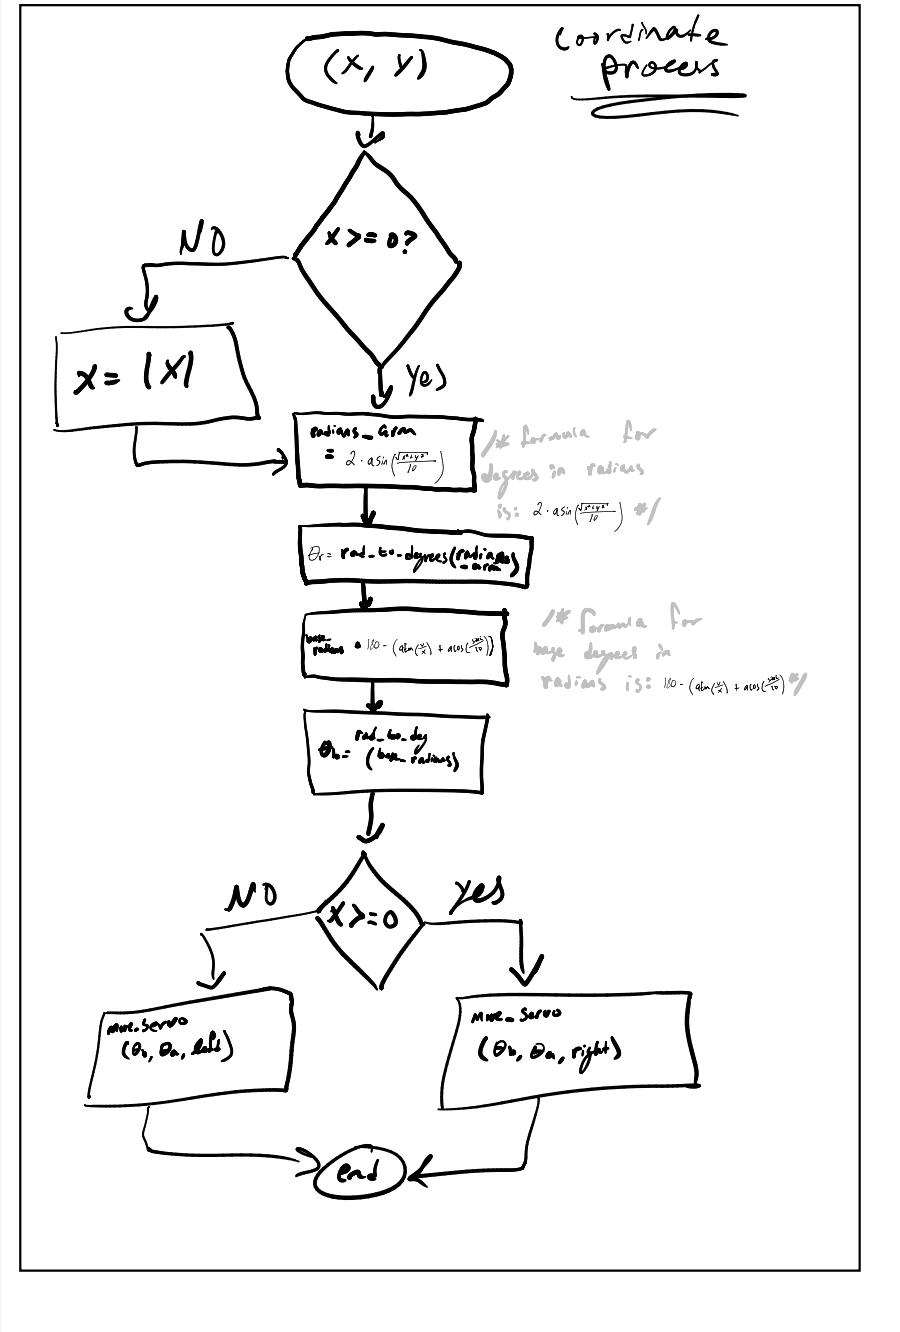 Coordinate
process
(x, y)
x >= 0?
NO
Yes
x = |x|
radians_arm
= 2 · asin(√x²+y²/10)
/* formula for
degrees in radians
is: 2 · asin(√x²+y²/10) */
θr = rad_to_degrees(radians
_arm)
base_
radians = 180 - (atan(y/x) + acos(√x²+y²/10))
/* formula for
base degrees in
radians is: 180 - (atan(y/x) + acos(√x²+y²/10) */
rad_to_deg
θb = (base_radians)
x >= 0
NO
Yes
move_servo
(θb, θa, left)
move_servo
(θb, θa, right)
end